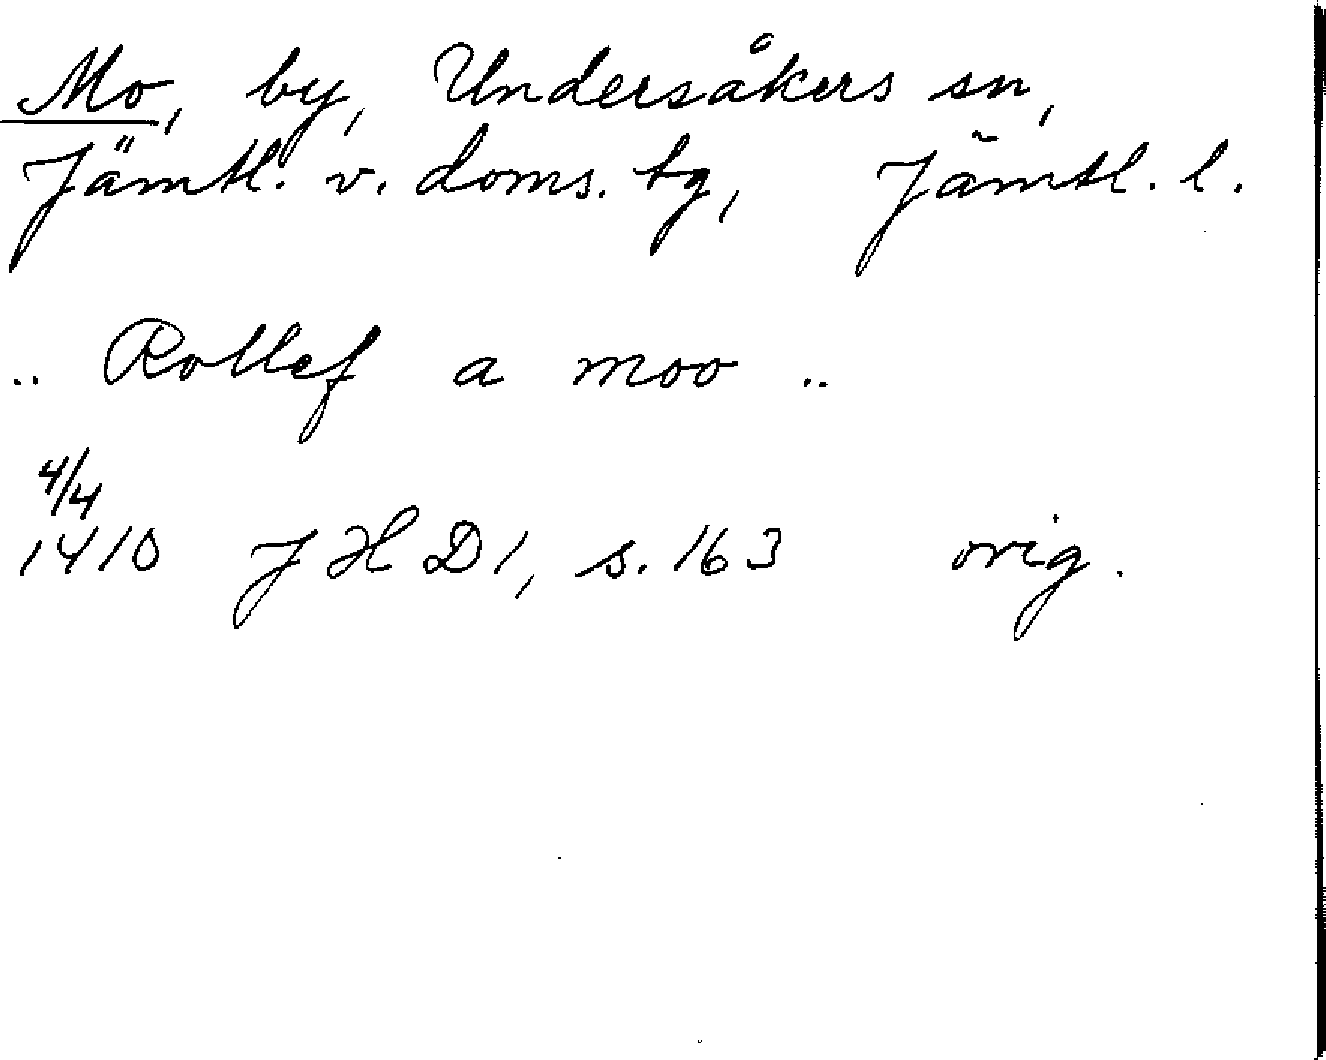 Mo, by, Undersåkers sn,
Jämtl. v. doms. tg, Jämtl. l.
.. Rollef a moo ..
4/4
1410 JHD1, s. 163 orig.